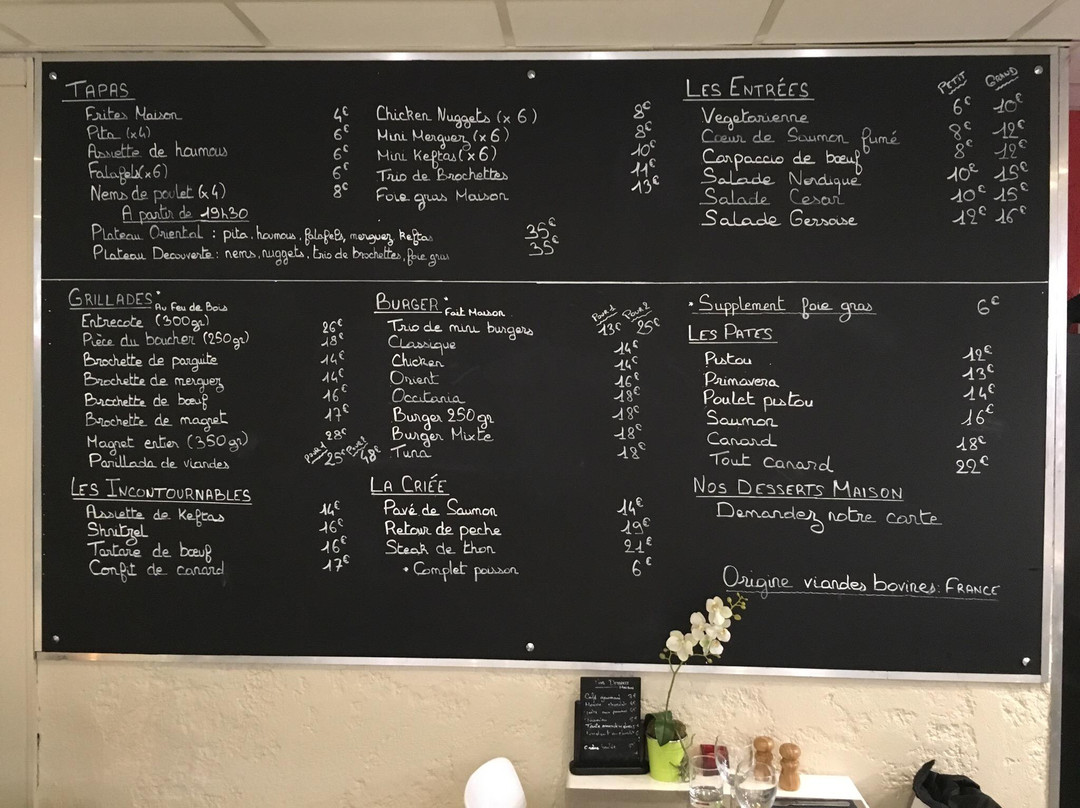 TAPAS
Frites Maison 4€
Pita (x4) 6€
Assiette de houmous 6€
Falafels (x6) 6€
Nems de poulet (x4) 8€
Chicken Nuggets (x 6) 8€
Mini Merguez (x 6) 8€
Mini Keftas (x 6) 10€
Trio de Brochettes 11€
Foie gras Maison 13€
A partir de 19h30
Plateau Oriental : pita, houmous, falafels, merguez, keftas 35€
Plateau Decouverte : nems, nuggets, trio de brochettes, foie gras 35€
LES ENTRÉES PETIT GRAND
Vegetarienne 6€ 10€
Cœur de Saumon fumé 8€ 12€
Carpaccio de bœuf 8€ 12€
Salade Nordique 10€ 15€
Salade Cesar 10€ 15€
Salade Gersoise 12€ 16€
GRILLADES * Au Feu de Bois
Entrecote (300gr) 26€
Piece du boucher (250gr) 18€
Brochette de parguite 14€
Brochette de merguez 14€
Brochette de bœuf 16€
Brochette de magret 17€
Magret entier (350gr) 28€
Pour 1 Pour 2
Parillada de viandes 25€ 48€
BURGER * Fait Maison Pour 1 Pour 2
Trio de mini burgers 13€ 25€
Classique 14€
Chicken 14€
Orient 16€
Occitania 18€
Burger 250gr 18€
Burger Mixte 18€
Tuna 18€
* Supplement foie gras 6€
LES PATES
Pistou 12€
Primavera 13€
Poulet pistou 14€
Saumon 16€
Canard 18€
Tout canard 22€
LES INCONTOURNABLES
Assiette de Keftas 14€
Shnitzel 16€
Tartare de bœuf 16€
Confit de canard 17€
LA CRIÉE
Pavé de Saumon 14€
Retour de peche 19€
Steak de thon 21€
* Complet poisson 6€
NOS DESSERTS MAISON
Demandez notre carte
Origine viandes bovines : FRANCE